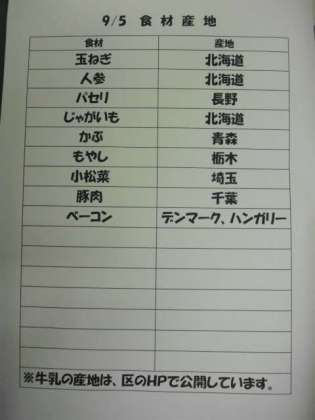 9/5 食材産地
食材 産地
玉ねぎ 北海道
人参 北海道
パセリ 長野
じゃがいも 北海道
かぶ 青森
もやし 栃木
小松菜 埼玉
豚肉 千葉
ベーコン デンマーク、ハンガリー
※牛乳の産地は、区のHPで公開しています。